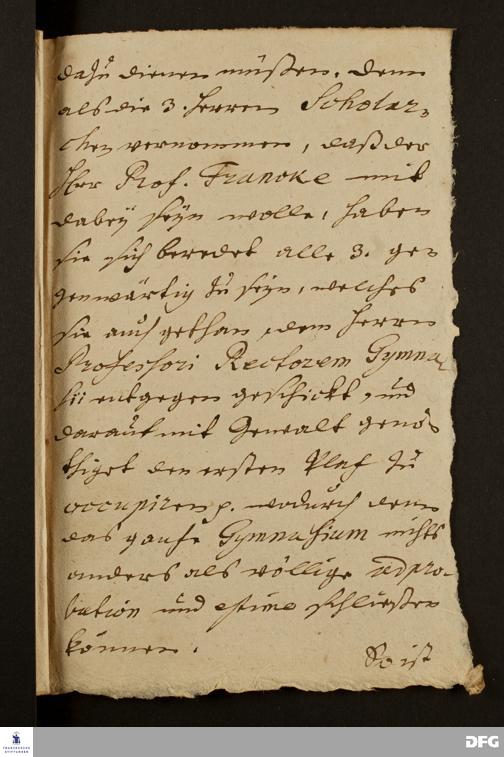 dazu dienen müßen. Denn
als die 3. Herren Scholar-
chen vernommen, daß der
Herr Prof. Francke mit
dabey seyn wolle, haben
sie sich beredet alle 3. ge-
genwärtig zu seyn, welches
sie auch gethan, dem Herrn
Professori Rectorem Gymna-
sii entgegen geschickt, und
darauf mit Gewalt genö-
thiget den ersten Platz zu
occupiren p. wodurch denn
das gantze Gymnasium nichts
anders als völlige adpro-
bation und estime schließen
können.
So ist
FRANCKESCHE STIFTUNGEN
DFG